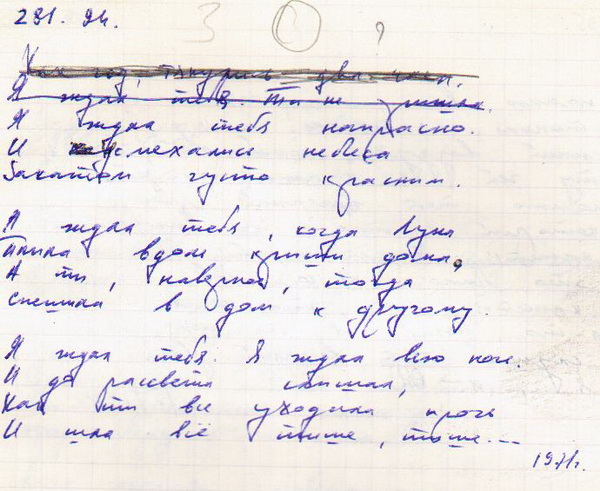 3 3 ?
Как год, тянулись два часа.
Я ждал тебя. Ты не пришла.
Я ждал тебя напрасно.
И усмехались небеса
Закатом густо красным.
Я ждал тебя, когда Луна
Плыла вдоль крыши дома,
А ты, наверное, тогда
Спешила в дом к другому.
Я ждал тебя. Я ждал всю ночь.
И до рассвета слышал,
Как ты все уходила прочь
И шла всё тише, тише...
1971г.